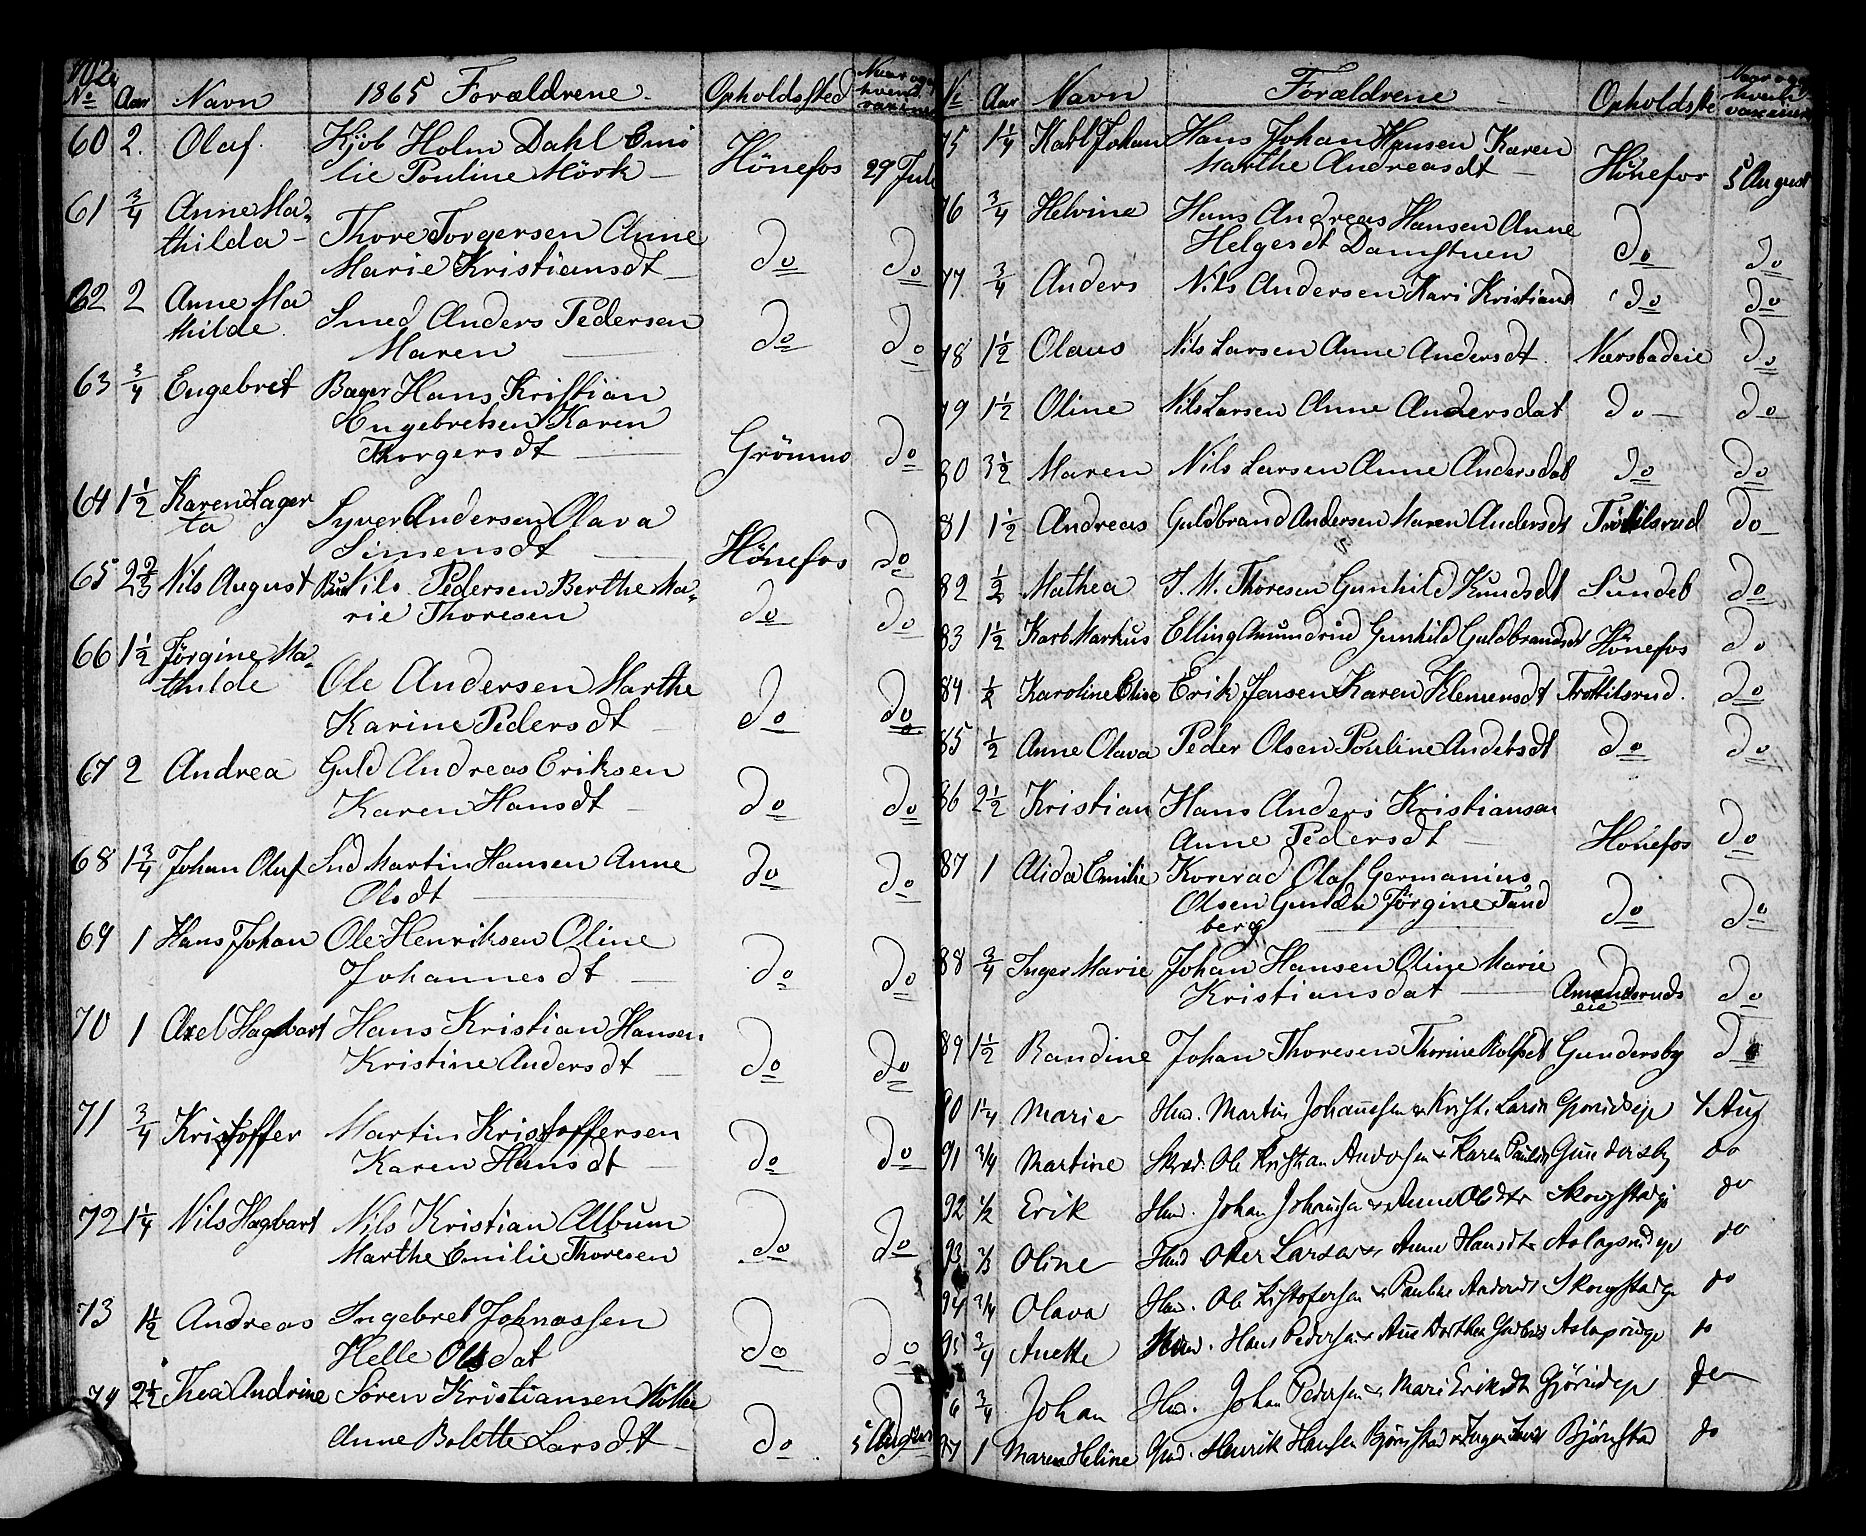 102
No Aar Navn 1865 Forældrene Opholdssted
60 2. Olaf. Kjöb Holm Dahl Emi
lie Pouline Mörk — Hönefos 29 Juli
61 3/4 Anne Ma-
thilda – Thore Torgersen Anne
Marie Kristiansdt — do do
62 2 Anne Ma
thilde. Smed Anders Pedersen
Maren — do do
63 3/4 Engebret Bager Hans Kristian
Engebretsen Karen
Thorgersdt — Grönvo do
64 1 1/2 Karen Lager
ta Syver Andersen Olava
Simensdt — Hönefos do
65 2 2/3 Nils August Nils Pedersen Berthe Ma-
rie Thoresen do do
66 1 1/2 Jørgine Ma-
thilde Ole Andersen Marthe
Karine Pedersdt — do do
67 2 Andrea Guld Andreas Eriksen
Karen Hansdt — do do
68 1 3/4 Johan Oluf Snd Martin Hansen Anne
Olsdt — do do
69 1 Hans Johan Ole Henriksen Oline
Johannesdt — do do
70 1 Axel Hagbart Hans Kristian Hansen
Kristine Andersdt — do do
71 3/4 Kristoffer Martin Kristoffersen
Karen Hansdt — do do
72 1 1/4 Nils Hagbart Nils Kristian Album
Marthe Emilie Thoresen do do
73 1 1/2 Andreas Ingebret Johnassen
Helle Olsdat do do
74 2 1/2 Thea Andrine Sören Kristiansen Kolbe
Anne Bolette Larsdt — do 5 August
No Aar Navn Forældrene Opholdsste
75 1 1/4 Karl Johan Hans Johan Hansen Karen
Marthe Andreasdt — Hönefos 5 August
76 3/4 Helvine Hans Andreas Hansen Anne
Helgesdt Damstuen do do
77 3/4 Anders Nils Andersen Kari Kristiansd do do
78 1 1/2 Olaus Nils Larsen Anne Andersdt. Næsbadeie do
79 1 1/2 Oline Nils Larsen Anne Andersdat do – do
80 3 1/2 Maren Nils Larsen Anne Andersdat do do
81 1 1/2 Andreas Guldbrand Andersen Maren Andersdt Trøtilsrud do
82 1/2 Mathea T. M. Thoresen Gunhild Knudsdt Sundeb do
83 1 1/2 Karl Markus Elling Amundrud Gunhild Guldbrandsdt Hönefos do
84 1/2 Karoline Oline Erik Jensen Karen Klemensdt Trøttilsrud. do
85 1/2 Anne Olava Peder Olsen Pouline Andersdt do do
86 2 1/2 Kristian Hans Anders Kristiansen
Anne Pedersdt — Hönefos do
87 1 Alida Emilie Konrad Olaf Germanius
Olsen Gunda Jörgine Tand
berg — do do
88 3/4 Inger Marie Johan Hansen Oline Marie
Kristiansdat — Amundsruds
eie do
89 1 1/2 Randine Johan Thoresen Thorine Rolfsdt Gundersby do
90 1 1/4 Marie Hmd. Martin Johannesen & Larsdt 4 Aug
91 3/4 Martine Skræd. Ole Kristian Andersen & Karen Paulsdt Gundersby do
92 1/2 Erik Hmd. Johan Johansen & Anne Olsdtr do
93 2/3 Oline Hmd Larsen & Anne Hansdtr do
94 3/4 Olava Hmd. Ole Kristofersen & Pauline do
95 3/4 Anette Hmd. Hans Pedersen & Anne Dorthea do
96 3/4 Johan Hmd. Johan Pedersen & Mari Eriksdt do
97 1 Maren Heline Henrik Hansen Bjørnstad & Inger Bjørnstad do